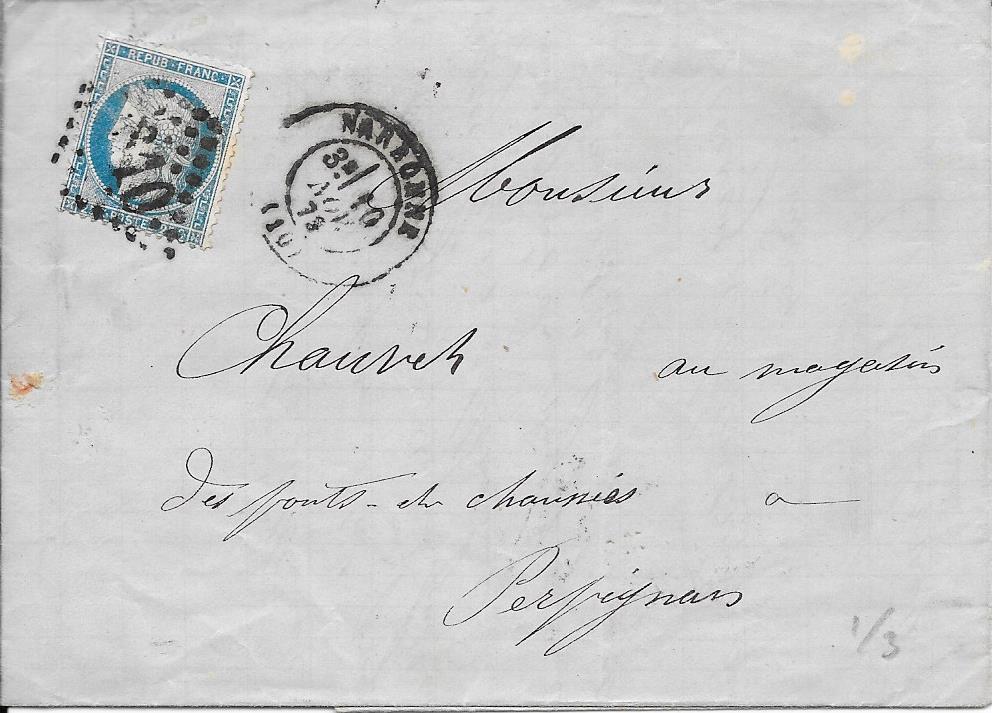 REPUB · FRANC
POSTE
NARBONNE
3E
10
AOUT
73
(10)
Monsieur
Chauvet au magasin
des ponts - et chaussées a
Perpignan
1/3